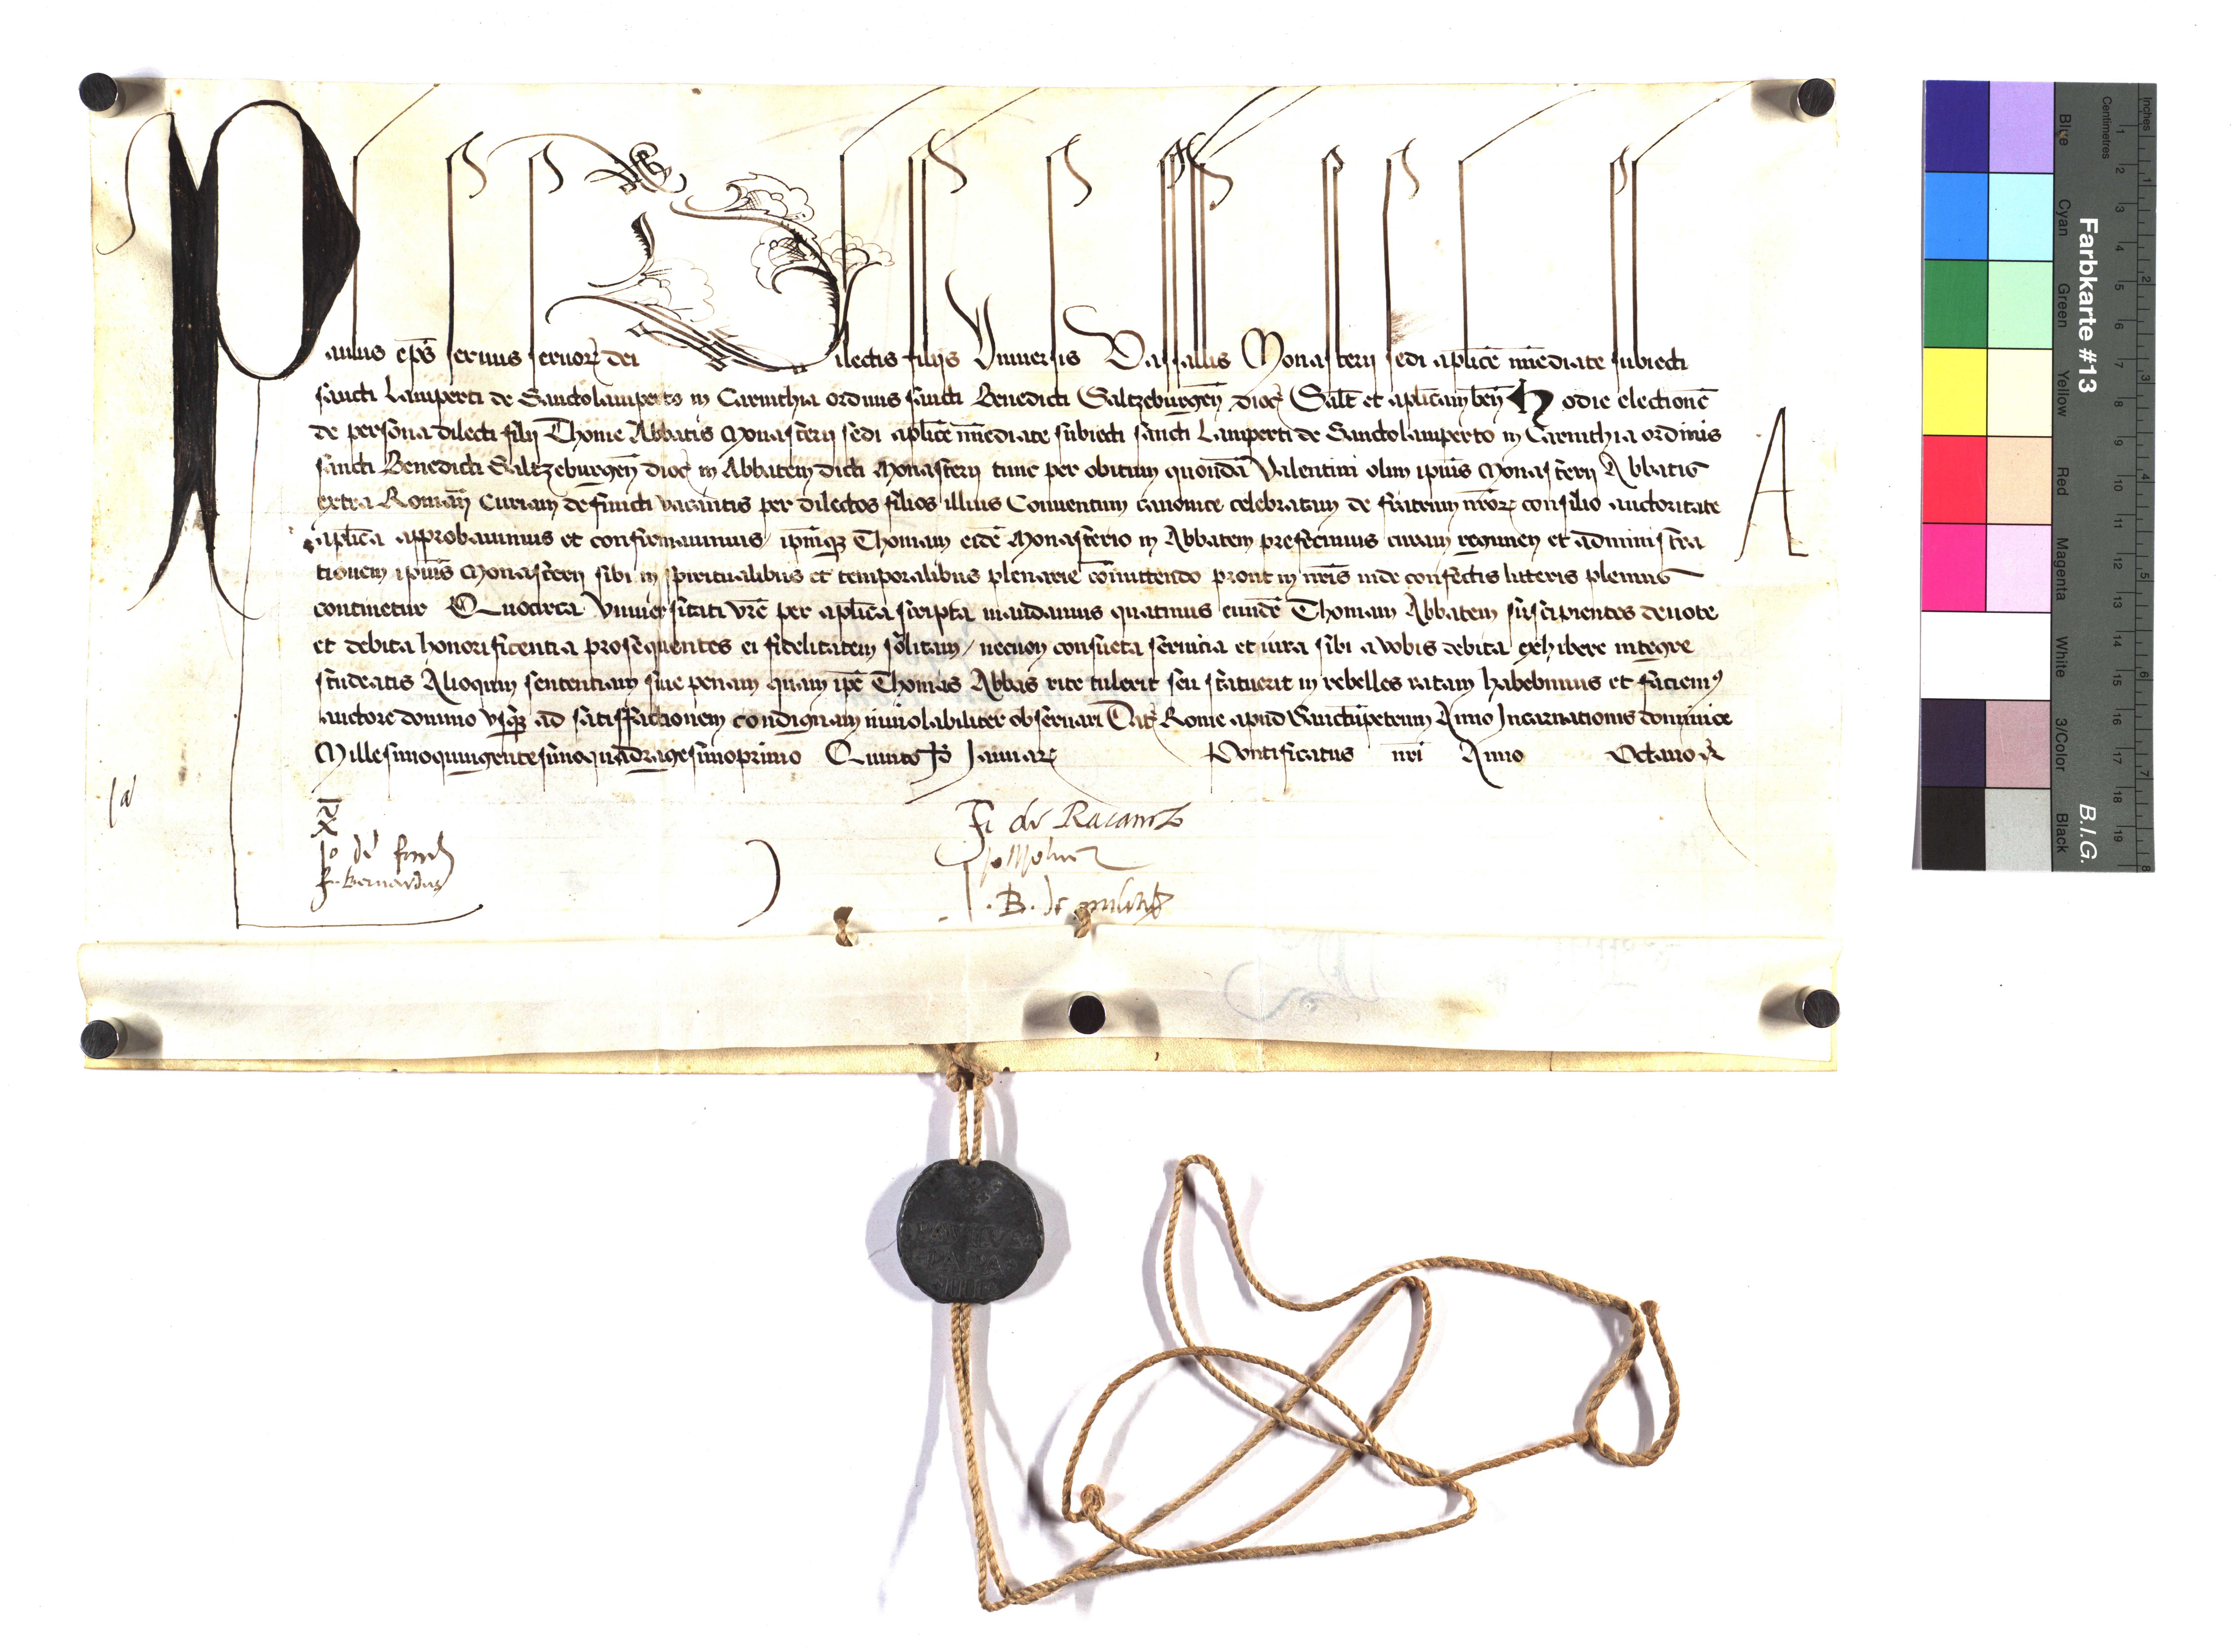 Paulus ep̄s seruus seruoꝝ dei Dilectis filijs Vniuersis Vassallis Monasterij sedi aplice īmediate subiecti
sancti Lamperti de Sanctolamperto in Carinthia ordinis sancti Benedicti Saltzeburgeñ dioc̄ Salt̄ et aplicam ben̄ Hodie electionē
de persona dilecti filij Thome Abbatis Monasterij sedi aplice īmediate subiecti sancti Lamperti de Sanctolamperto in Carinthia ordinis
sancti Benedicti Saltzeburgeñ dioc̄ in Abbatem dicti Monasterij tunc per obitum quondā Valentini olim ipius Monasterij Abbatis
extra Romañ Curiam defuncti vacantis per dilectos filios illius Conuentum canonice celebratam de fratrum nr̄oꝝ consilio auctoritate
aplica approbauimus et confirmauimus ipm̄qꝫ Thomam eidē Monasterio in Abbatem prefecimus curam regimen et administra
tionem ipius Monasterij sibi in spiritualibus et temporalibus plenarie cōmittendo prout in nr̄is inde confectis litteris plenius
continetur Quocirca Vniuersitati vr̄e per aplica scripta mandamus quatinus eundē Thomam Abbatem suscipientes deuote
et debita honorificentia prosequentes ei fidelitatem solitam necnon consueta seruicia et iura sibi a vobis debita exhibere integre
studeatis Alioquin sententiam siue penam quam ipē Thomas Abbas rite tulerit seu statuerit in rebelles ratam habebimus et faciemꝰ
auctore domino vsqꝫ ad satisfactionem condignam inuiolabiliter obseruari Dat̄ Rome apud Sanctūpetrum Anno Incarnationis dominice
Millesimoquingentesimoquadragesimoprimo Quinto Id̄ Januaꝝ Pontificatus nr̄i Anno Octauo
A
Fr̄ Bernardus
PAVLVS
PAPA
III
Farbkarte #13
B.I.G.
Blue
Cyan
Green
Yellow
Red
Magenta
White
3/Color
Black
Inches
Centimetres
1 2 3 4 5 6 7 8 9 10 11 12 13 14 15 16 17 18 19
1 2 3 4 5 6 7 8